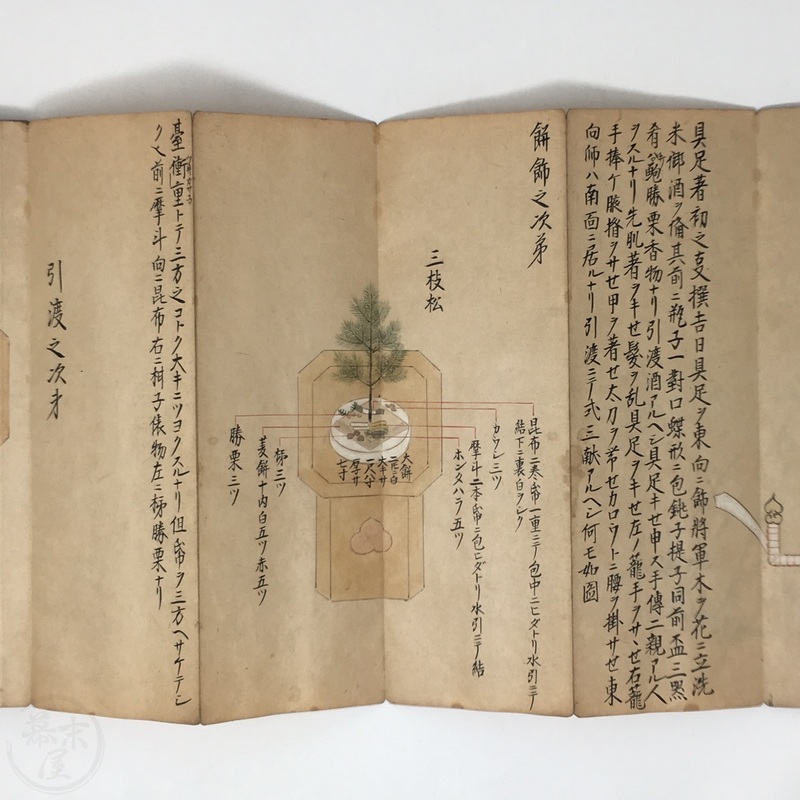 具足著初之支撰吉日具足ヲ東向ニ飾將軍木ヲ花ニ立洗
米御酒ヲ備其前ニ瓶子一對口蝶形ニ包銚子提子同前盃三
肴鮑勝栗香物ナリ引渡酒アルヘシ具足キセ申ス手傳二親アル人
ヲスルナリ先肌著ヲキセ髮ヲ乱具足ヲキセ左ノ籠手ヲサヽせ右籠
手捧ケ脓揩ヲサせ甲ヲ著せ太刀ヲ帯せカロウトニ腰ヲ掛サせ東
向師ハ南面ニ居ルナリ引渡ニテ式三献アルヘシ何モ如圖
餅飾之次第
三枝松
昆布二巻帋一重ニテ包中ニヒダトリ水引ニテ
結下ニ裏白ヲシク
カウシ三ツ
摩斗二本帋ニ包ヒダトリ水引ニテ結
ホンタハラ五ツ
大餅
二ツ白
大キサ
一尺八寸
厚サ
七寸
柿三ツ
菱餅十内白五ツ赤五ツ
勝栗三ツ
臺衝重トテ三方之コトク大キニツヨクスルナリ但帋ヲ三方ヘサケテシ
ク又前ニ摩斗向ニ昆布右ニ柑子俵物左ニ柿勝栗ナリ
引渡之次才
幕末屋